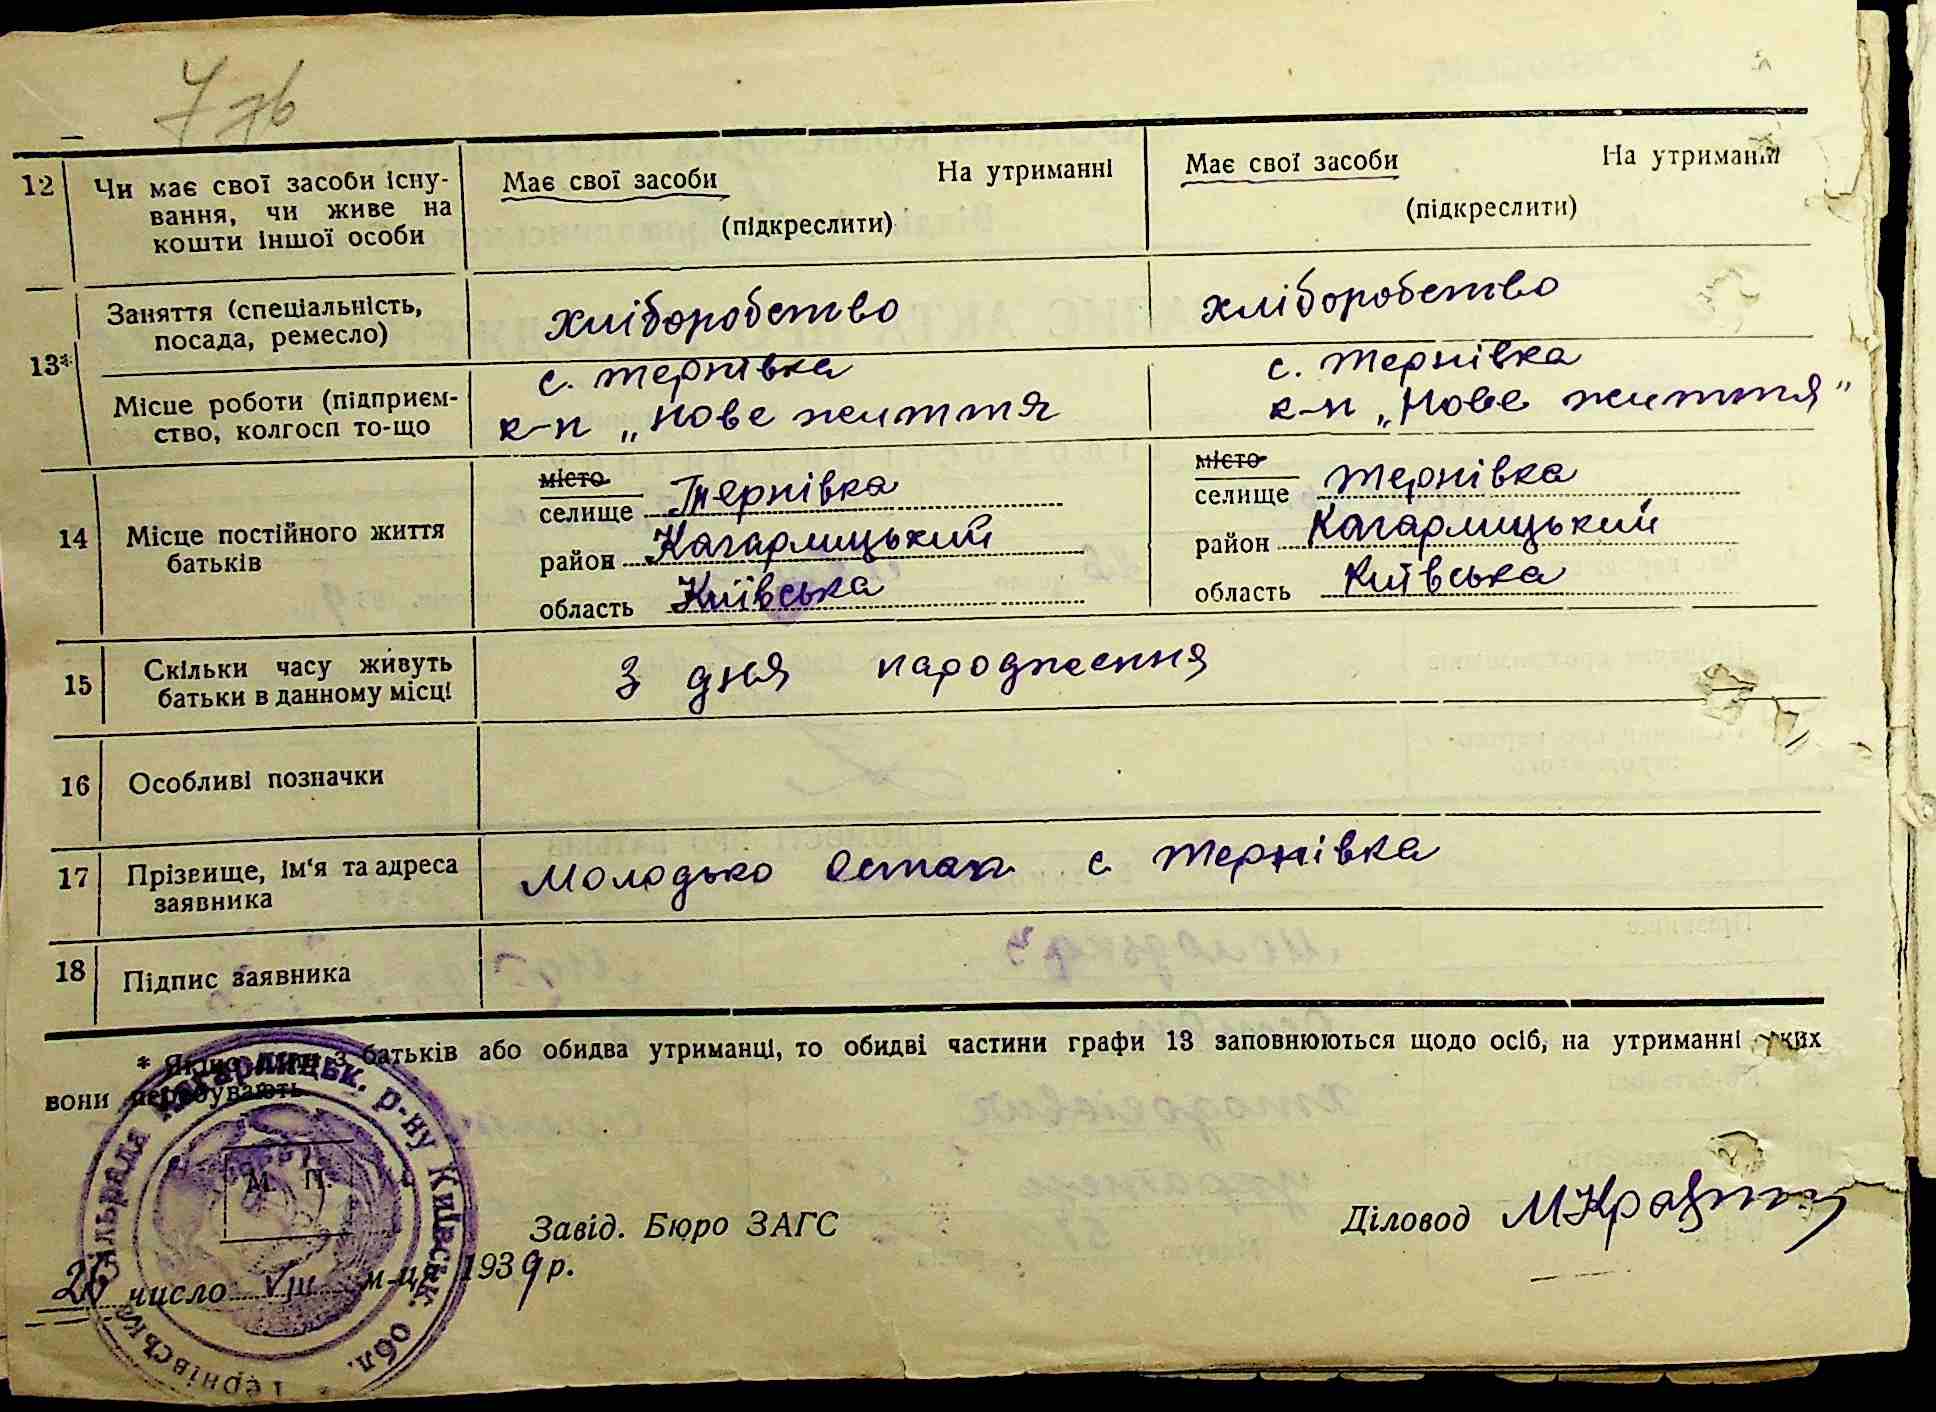 12 Чи має свої засоби існу-
вання, чи живе на
кошти іншої особи
Має свої засоби На утриманні
(підкреслити)
Має свої засоби На утриманні
(підкреслити)
13*
Заняття (спеціальність,
посада, ремесло)
хліборобство
хліборобство
Місце роботи (підприєм-
ство, колгосп то-що
с. Тернівка
к-п „Нове життя
с. Тернівка
к-п „Нове життя"
14 Місце постійного життя
батьків
місто
селище Тернівка
район Кагарлицький
область Київська
місто
селище Тернівка
район Кагарлицький
область Київська
15 Скільки часу живуть
батьки в данному місці
З дня народження
16 Особливі позначки
17 Прізвище, ім'я та адреса
заявника
Молодько Остап с Тернівка
18 Підпис заявника
* Якщо один з батьків або обидва утриманці, то обидві частини графи 13 заповнюються щодо осіб, на утриманні яких
вони перебувають
Тернівська сільрада Кагарлицьк. р-ну Київськ. обл.
М. П.
Завід. Бюро ЗАГС
Діловод
26 число VIII м-ця 1939 р.